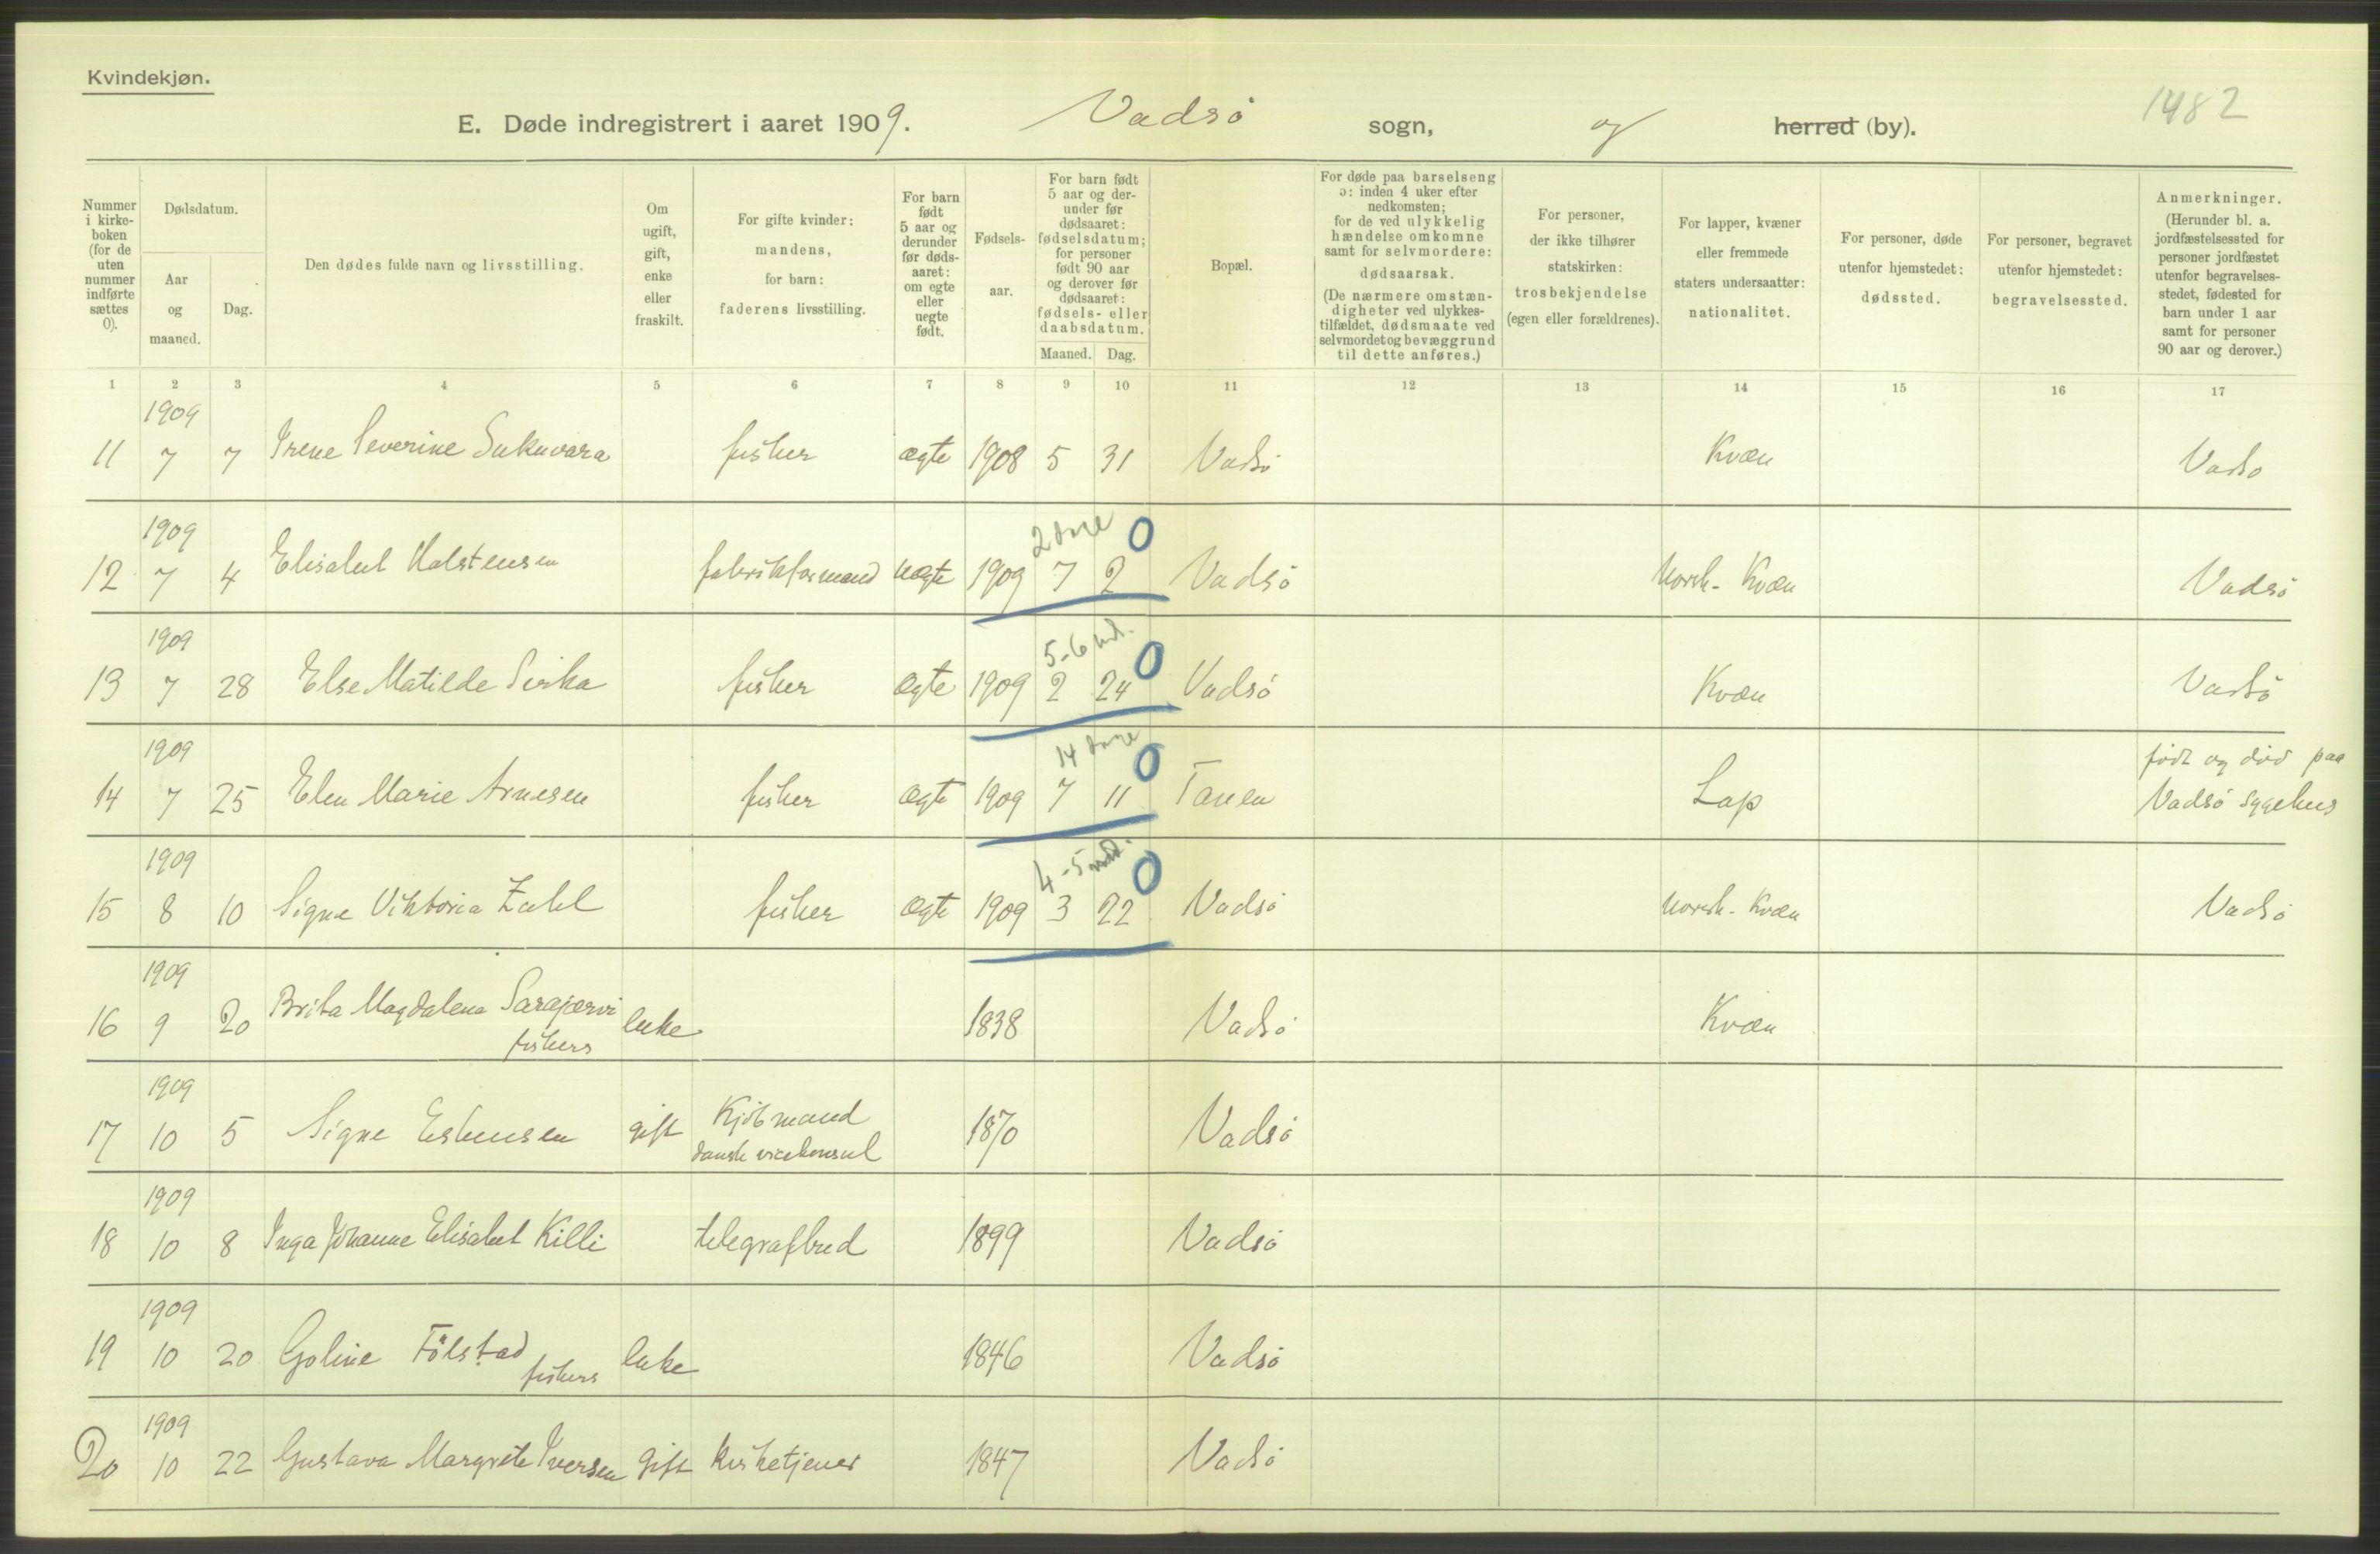 Kvindekjøn.
1482
E. Døde indregistrert i aaret 1909. Vadsø sogn, og herred (by).
Nummer i kirke-boken (for de uten nummer indførte sættes 0).
Dødsdatum.
Aar og maaned.
Dag.
Den dødes fulde navn og livsstilling.
Om ugift, gift, enke eller fraskilt.
For gifte kvinder: mandens, for barn: faderens livsstilling.
For barn født 5 aar og derunder før døds-aaret: om egte eller uegte født.
Fødsels-aar.
For barn født 5 aar og der-under før dødsaaret: fødselsdatum; for personer født 90 aar og derover før dødsaaret: fødsels- eller daabsdatum.
Maaned. Dag.
Bopæl.
For døde paa barselseng ɔ: inden 4 uker efter nedkomsten; for de ved ulykkelig hændelse omkomne samt for selvmordere: dødsaarsak. (De nærmere omstæn-digheter ved ulykkes-tilfældet, dødsmaate ved selvmordet og bevæggrund til dette anføres.)
For personer, der ikke tilhører statskirken: trosbekjendelse (egen eller forældrenes).
For lapper, kvæner eller fremmede staters undersaatter: nationalitet.
For personer, døde utenfor hjemstedet: dødssted.
For personer, begravet utenfor hjemstedet: begravelsessted.
Anmerkninger. (Herunder bl. a. jordfæstelsessted for personer jordfæstet utenfor begravelses-stedet, fødested for barn under 1 aar samt for personer 90 aar og derover.)
1 2 3 4 5 6 7 8 9 10 11 12 13 14 15 16 17
1909
11 7 7 Irene Severine Sukuvara fisker ægte 1908 5 31 Vadsø Kvæn Vadsø
1909 2 dage 0
12 7 4 Elisabet Halstensen fabrikformand uægte 1909 7 2 Vadsø Norsk-Kvæn Vadsø
1909 5-6 md. 0
13 7 28 Else Matilde Sirka fisker ægte 1909 2 24 Vadsø Kvæn Vadsø
1909 14 dage 0 født og død paa
14 7 25 Elen Marie Arnesen fisker ægte 1909 7 11 Tanen Lap Vadsø sygehus
1909 4-5 md. 0
15 8 10 Signe Viktoria Zahl fisker ægte 1909 3 22 Vadsø Norsk-Kvæn Vadsø
1909
16 9 20 Brita Magdalena Sarajærvi fiskers enke 1838 Vadsø Kvæn
1909
17 10 5 Signe Esbensen gift Kjøbmand dansk vicekonsul 1870 Vadsø
1909
18 10 8 Inga Johanne Elisabet Killi telegrafbud 1899 Vadsø
1909
19 10 20 Goline Følstad fiskers enke 1846 Vadsø
1909
20 10 22 Gustava Margrete Iversen gift kirketjener 1847 Vadsø